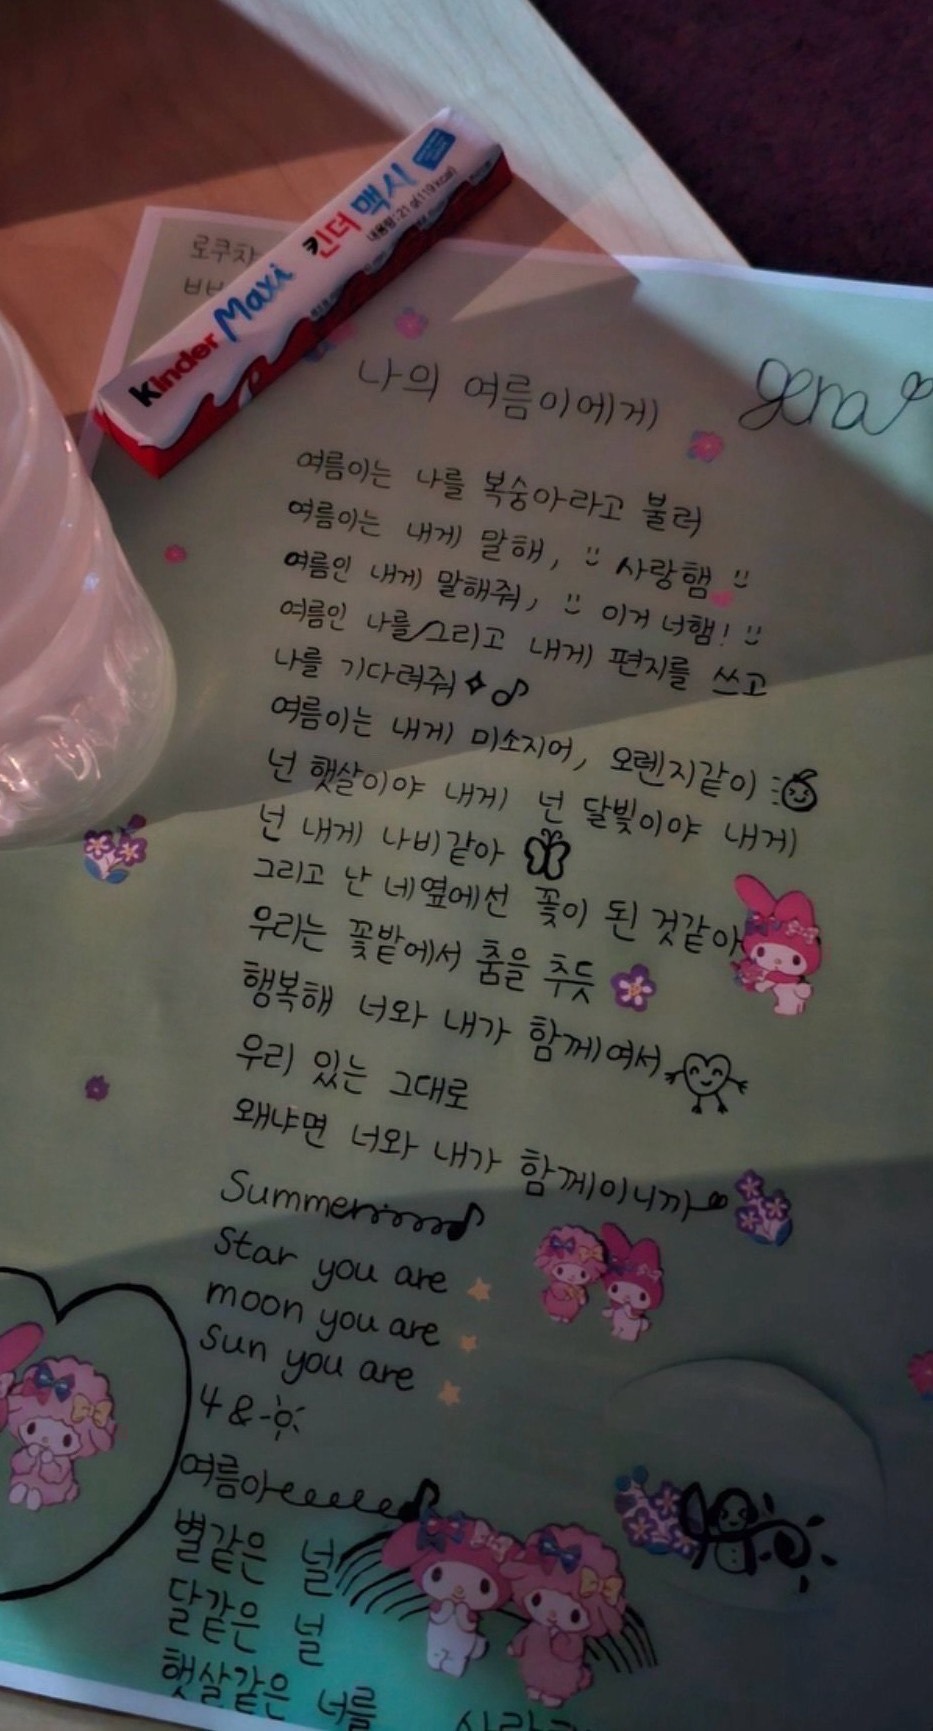 kinder Maxi 킨더 맥시
내용량: 21 g(119 kcal)
로쿠차
나의 여름이에게
gena
여름이는 나를 복숭아라고 불러
여름이는 내게 말해, :) 사랑햄 :)
여름인 내게 말해줘, :) 이거 너햄! :)
여름인 나를 그리고 내게 편지를 쓰고
나를 기다려줘
여름이는 내게 미소지어, 오렌지같이
넌 햇살이야 내게 넌 달빛이야 내게
넌 내게 나비같아
그리고 난 네옆에선 꽃이 된 것같아
우리는 꽃밭에서 춤을 추듯
행복해 너와 내가 함께여서
우리 있는 그대로
왜냐면 너와 내가 함께이니까
Summer
Star you are
moon you are
Sun you are
4 &
여름아
별같은 널
달같은 널
햇살같은 너를